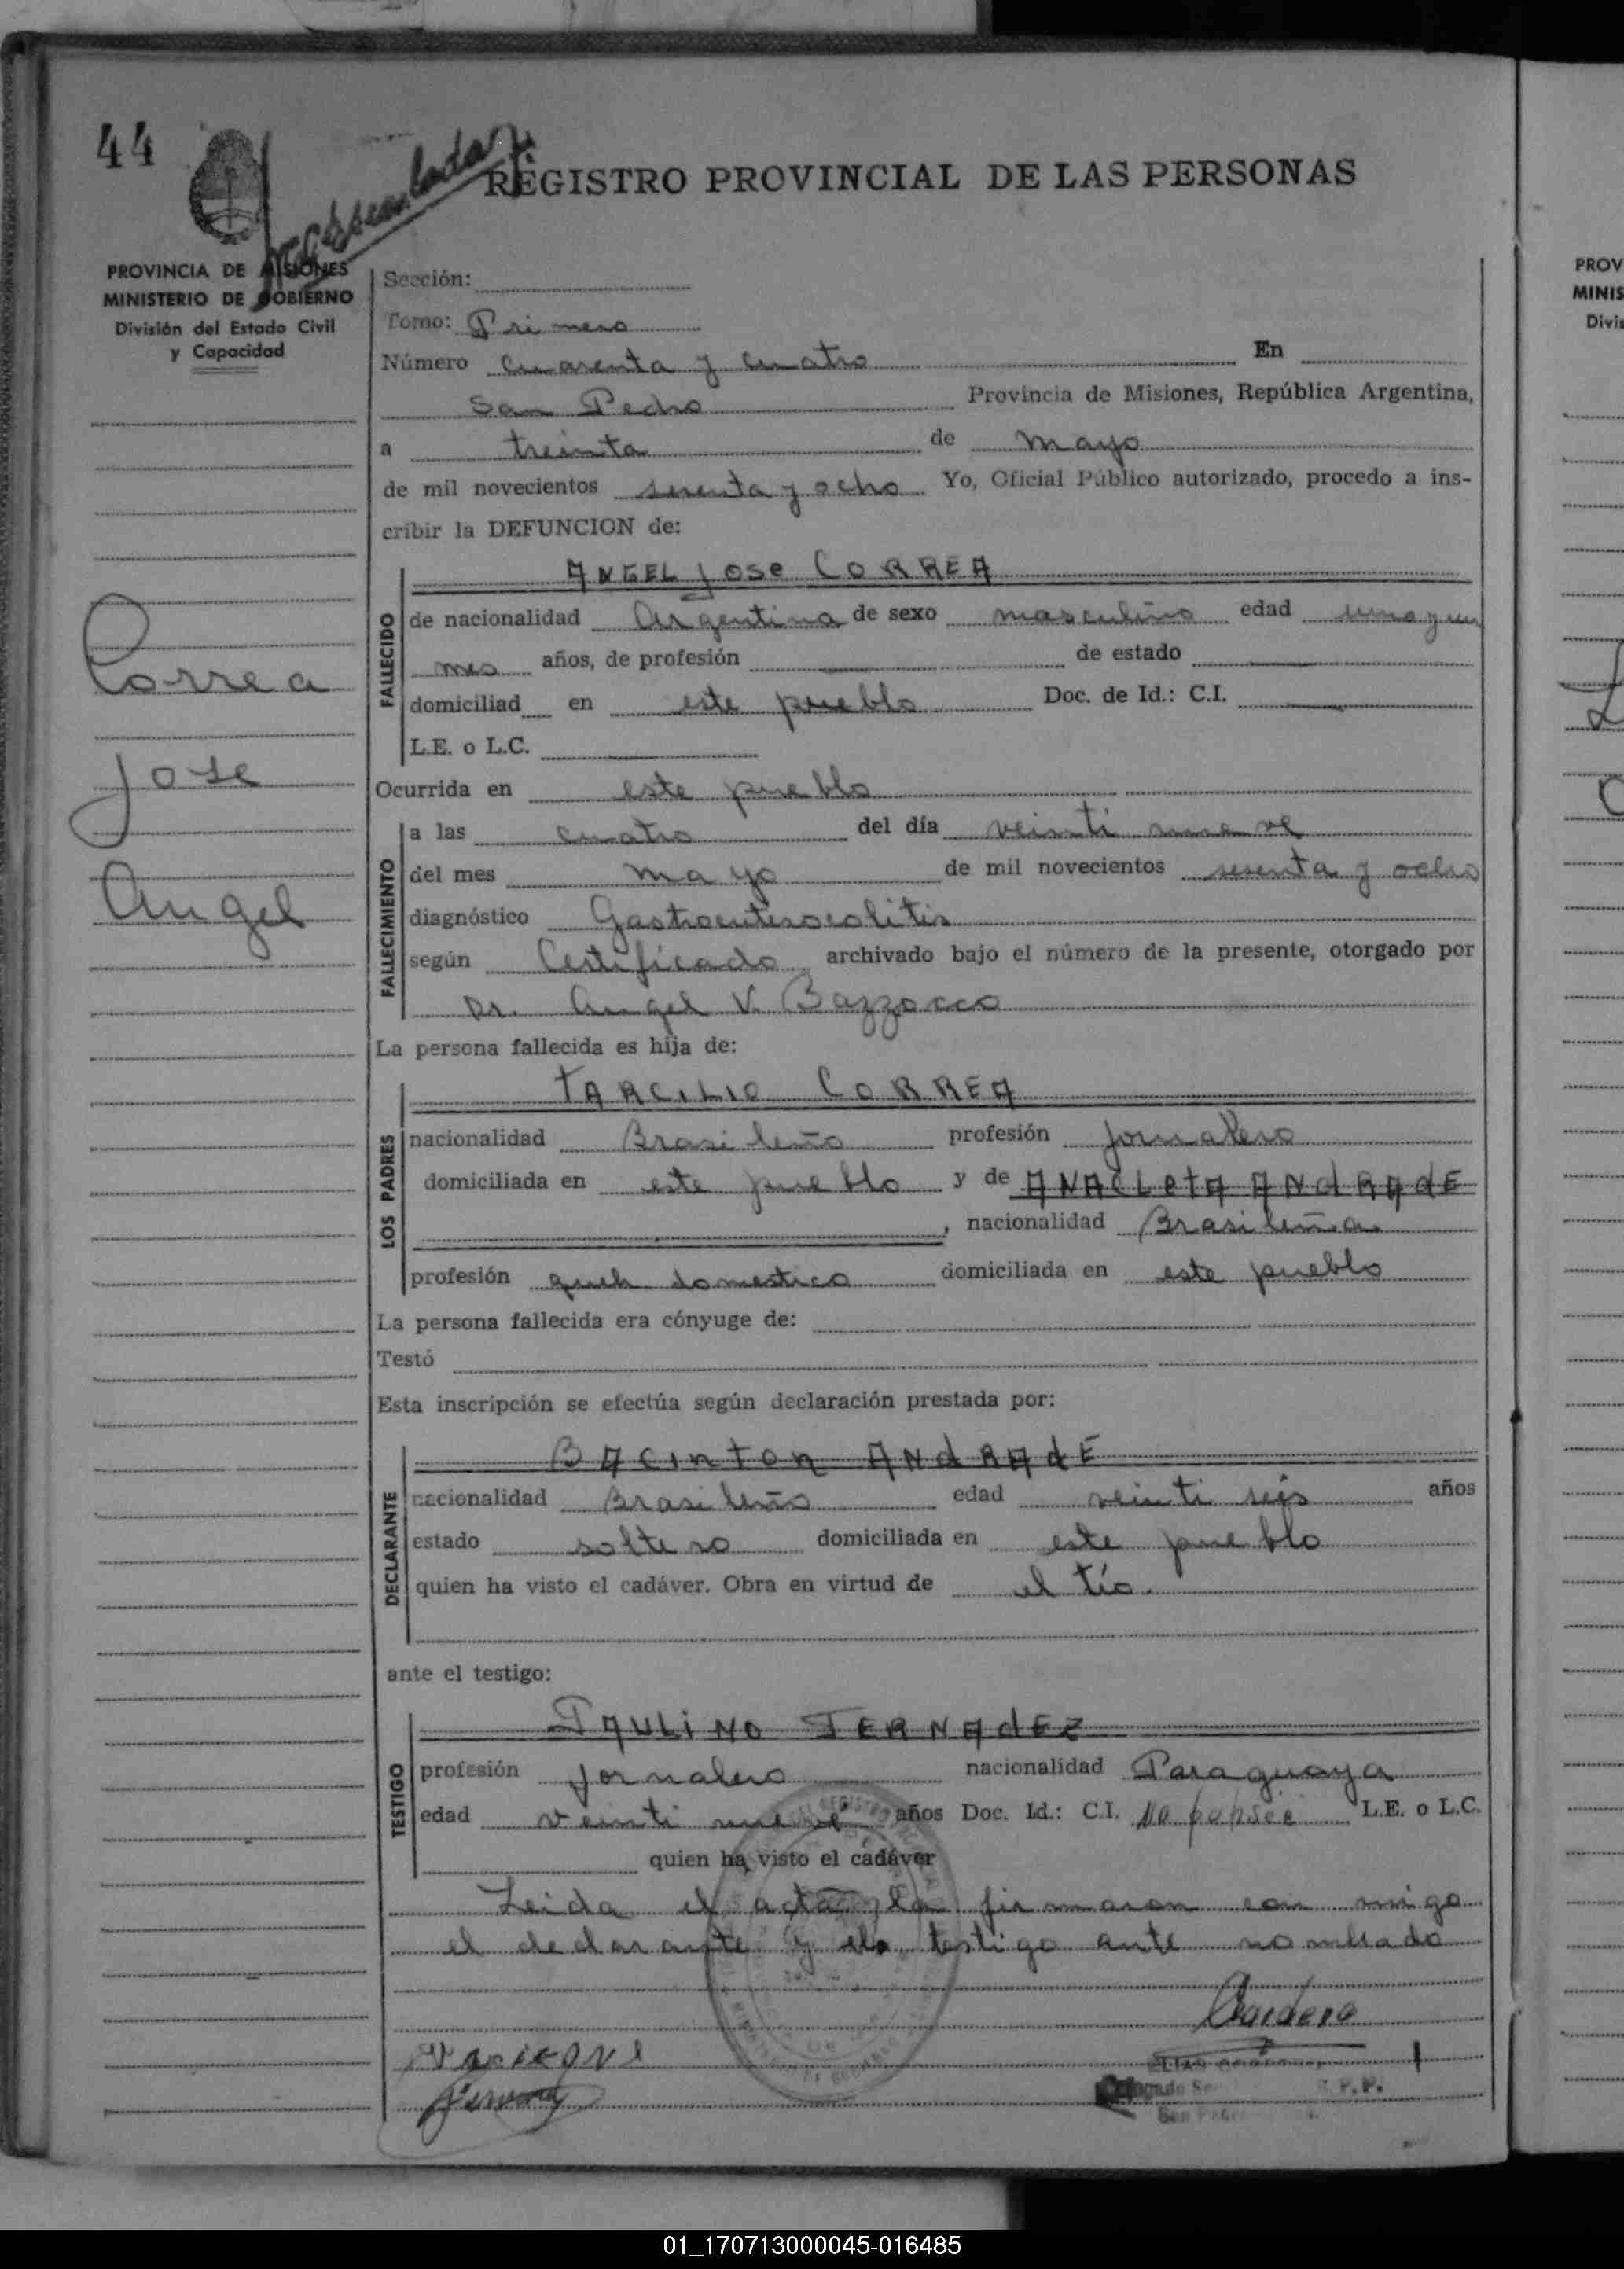 44
REGISTRO PROVINCIAL DE LAS PERSONAS
PROVINCIA DE MISIONES
MINISTERIO DE GOBIERNO
División del Estado Civil
y Capacidad
Correa
Jose
Angel
Sección:
Tomo: Primero
Número cuarenta y cuatro En
San Pedro Provincia de Misiones, República Argentina,
a treinta de mayo
de mil novecientos sesenta y ocho Yo, Oficial Público autorizado, procedo a ins-
cribir la DEFUNCION de:
FALLECIDO
ANGEL JOSE CORREA
de nacionalidad Argentina de sexo masculino edad uno y un
mes años, de profesión de estado
domiciliad en este pueblo Doc. de Id.: C.I.
L.E. o L.C.
Ocurrida en este pueblo
FALLECIMIENTO
a las cuatro del día veinti nueve
del mes mayo de mil novecientos sesenta y ocho
diagnóstico Gastroenterocolitis
según Certificado archivado bajo el número de la presente, otorgado por
Dr. Angel V. Bazzocco
La persona fallecida es hija de:
LOS PADRES
TARCILIO CORREA
nacionalidad Brasileño profesión jornalero
domiciliada en este pueblo y de ANACLETA ANdRAdE
, nacionalidad Brasileña
profesión queh domestico domiciliada en este pueblo
La persona fallecida era cónyuge de:
Testó
Esta inscripción se efectúa según declaración prestada por:
DECLARANTE
BACINTON ANdRAdE
nacionalidad Brasileño edad veinti seis años
estado soltero domiciliada en este pueblo
quien ha visto el cadáver. Obra en virtud de el tío.
ante el testigo:
TESTIGO
PAULINO FERNAdEZ
profesión jornalero nacionalidad Paraguaya
edad veinti nueve años Doc. Id.: C.I. no posee L.E. o L.C.
quien ha visto el cadáver
Leida el acta la firmaron con migo
el declarante y el testigo ante nombrado
San Pedro
01_170713000045-016485
PROV
MINIS
Divis